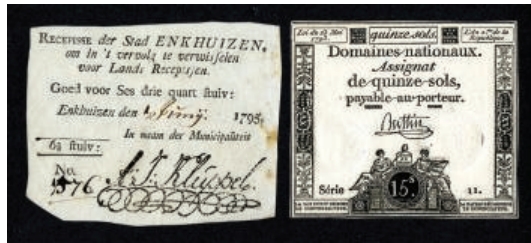 RECEPISSE der Stad ENKHUIZEN,
om in 't vervolg te verwisselen
voor Lands Recepissen.
Goed voor Ses drie quart stuiv:
Enkhuizen den Junij. 1795.
In naam der Municipaliteit
6¾ stuiv:
No.
1576
quinze sols.
Domaines nationaux.
Assignat
de quinze sols,
payable au porteur.
Buttin
Série
15.s
11.